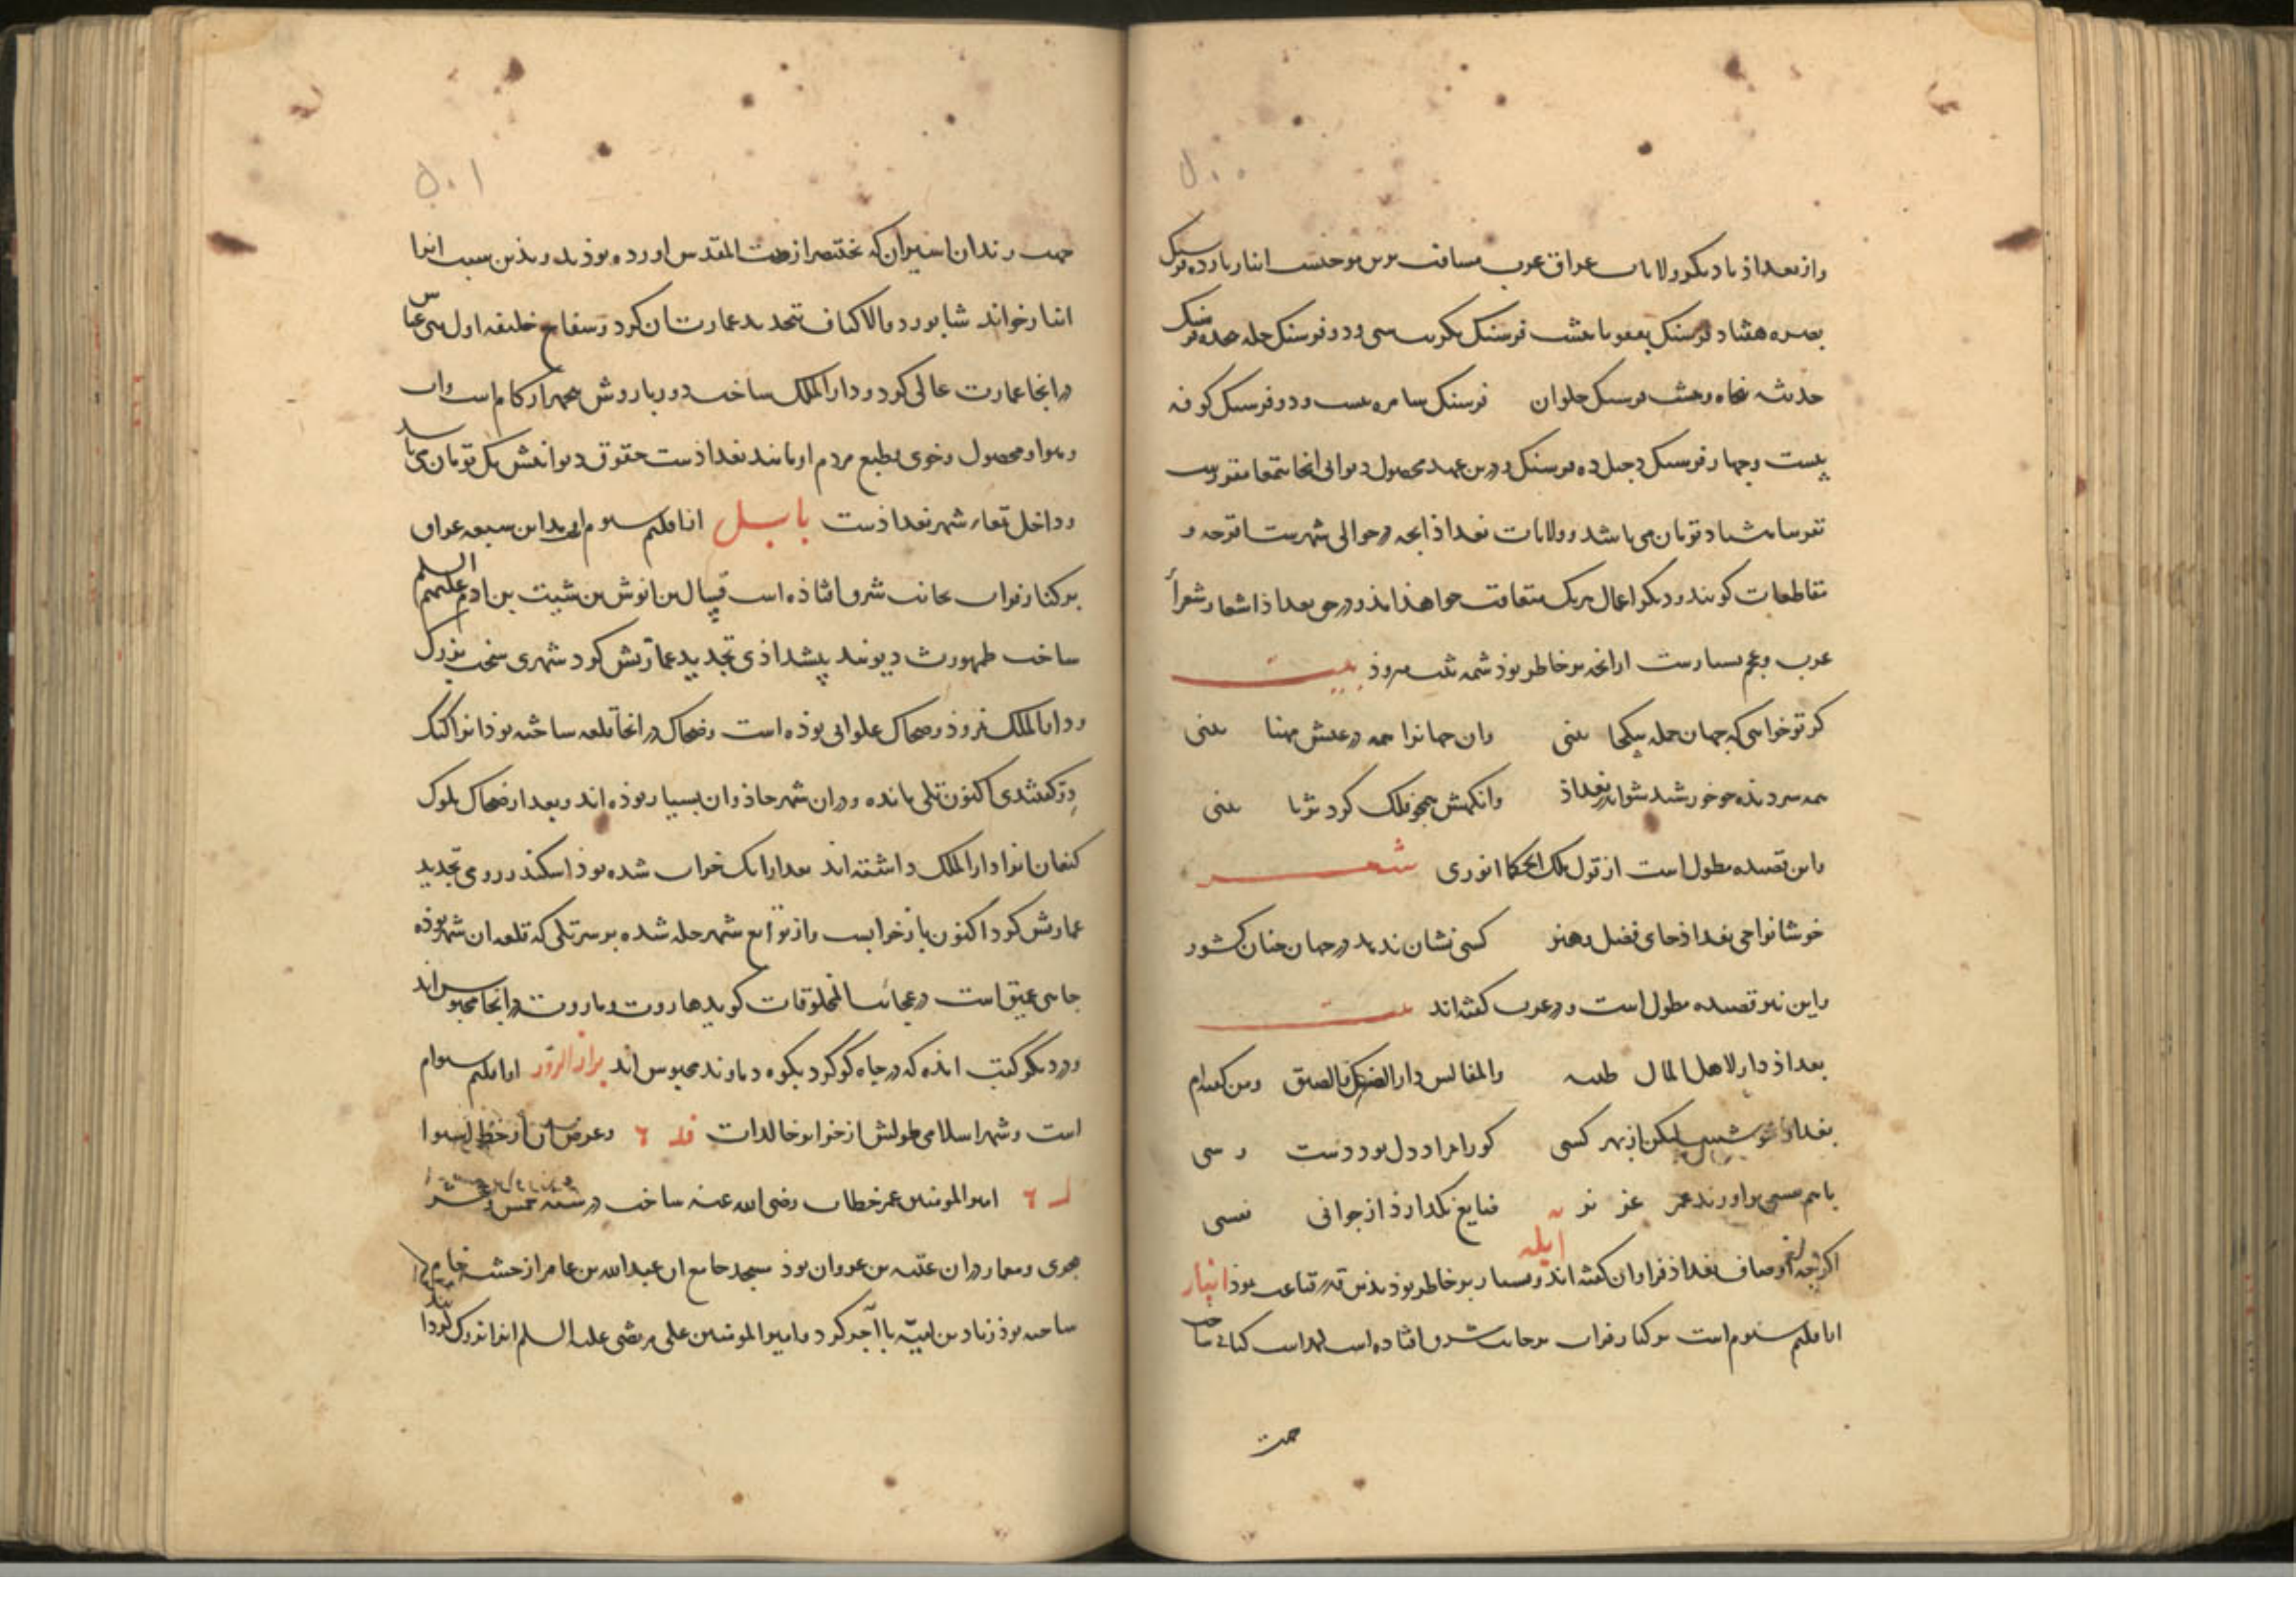 ۵۰۰
واز بغداذ تا دیکر ولایات عراق عرب مسافت برین موجبست انبار یازده فرسنک
بصره هشتاد فرسنک بعقوبا هشت فرسنک تکریت سی و دو فرسنک حله هجده فرسنک
حدیثه پنجاه و هشت فرسنک حلوان فرسنک سامره بیست و دو فرسنک کوفه
بیست و چهار فرسنک دجیل ده فرسنک درین عهد محصول دیوانی انجا بتمغا مقررست
تقریبا هشتاد تومان می باشد و ولایات بغداذ انچه در حوالی شهرست و
مقاطعات کویند و دیکر اعمال هریک متعاقب خواهذ امذ و در حق بغداذ اشعار شعرأ
عرب و عجم بسیارست ازانچه بر خاطر بوذ شمه ثبت میروذ بیت
کر تو خواهی که جهان جمله بیکجا بینی وان جهانرا همه در عیش مهنا بینی
همه سر دیذه چو خورشید شو اندر بغداذ وانکهش همچو فلک کرد ثریا بینی
واین قصیده مطول است از قول ملک الحکما انوری شعر
خوشا نواحی بغداذ جای فضل و هنر کسی نشان ندهد در جهان چنان کشور
واین نیز قصیده مطول است و در عرب کفته اند بیت
بغداذ دار لاهل المال طیبه وللمفالیس دار الضنک والضیق
بغداذ خوشست لیکن از بهر کسی کورا بمراد دل بود دست رسی
با هم نفسی براورند عمر عزیز ضایع نکذارذ از جوانی نفسی
اکرچه در اوصاف بغداذ فراوان کفته اند و بسیار بر خاطر بوذ بدین قدر قناعت بوذ انبار
ایله
از اقلیم سیوم است بر کنار فرات بر جانب شرقی افتاده است لهراسف کیانی ساخت
جهت
۵۰۱
جهت زندان اسیران که بختنصر از بیت المقدس اورده بوذند و بذین سبب انرا
انبار خواند شابور ذو الاکتاف تجدید عمارت ان کرد و سفاح خلیفه اول بنی عباس
درانجا عمارت عالی کرد و دار الملک ساخت دور باروش پنجهزار کام است و اب
و هوا و محصول و خوی و طبع مردم او مانند بغداذست حقوق دیوانیش یک تومان می باشد
و داخل تمغاء شهر بغداذست بابل از اقلیم سیوم از مداین سبعه عراق
بر کنار فرات بجانب شرقی افتاذه است قینان بن انوش بن شیث بن ادم علیهم السلم
ساخت طهمورث دیوبند پیشداذی تجدید عمارتش کرد شهری سخت بزرک
و دار الملک نمروذ و ضحاک علوانی بوذه است و ضحاک درانجا قلعه ساخته بوذ انرا کنک
دز کفتندی اکنون تلی مانده و دران شهر جاذوان بسیار بوذه اند و بعد از ضحاک ملوک
کنعان انرا دار الملک داشته اند بعد ازانک خراب شده بوذ اسکندر رومی تجدید
عمارتش کرد اکنون باز خرابست و از توابع شهر حله شده بر سر تلی که قلعه ان شهر بوذه
چاهی عمیق است در عجائب المخلوقات کوید هاروت و ماروت درانجا محبوس اند
و در دیکر کتب امذه که در چاه کوکرد بکوه دماوند محبوس اند براز الروز از اقلیم سیوم
است و شهر اسلامی طولش از جزایر خالدات و عرض ان از خط استوا
امیر المومنین عمر خطاب رضی الله عنه ساخت در سنه خمس عشر
هجری و معمار دران عتبه بن غزوان بوذ مسجد جامع ان عبد الله بن عامر از خشت خام
ساخته بوذ زیاد بن ابیه با آجر کرد و امیر المومنین علی مرتضی علیه السلم انرا بزرک کردانید